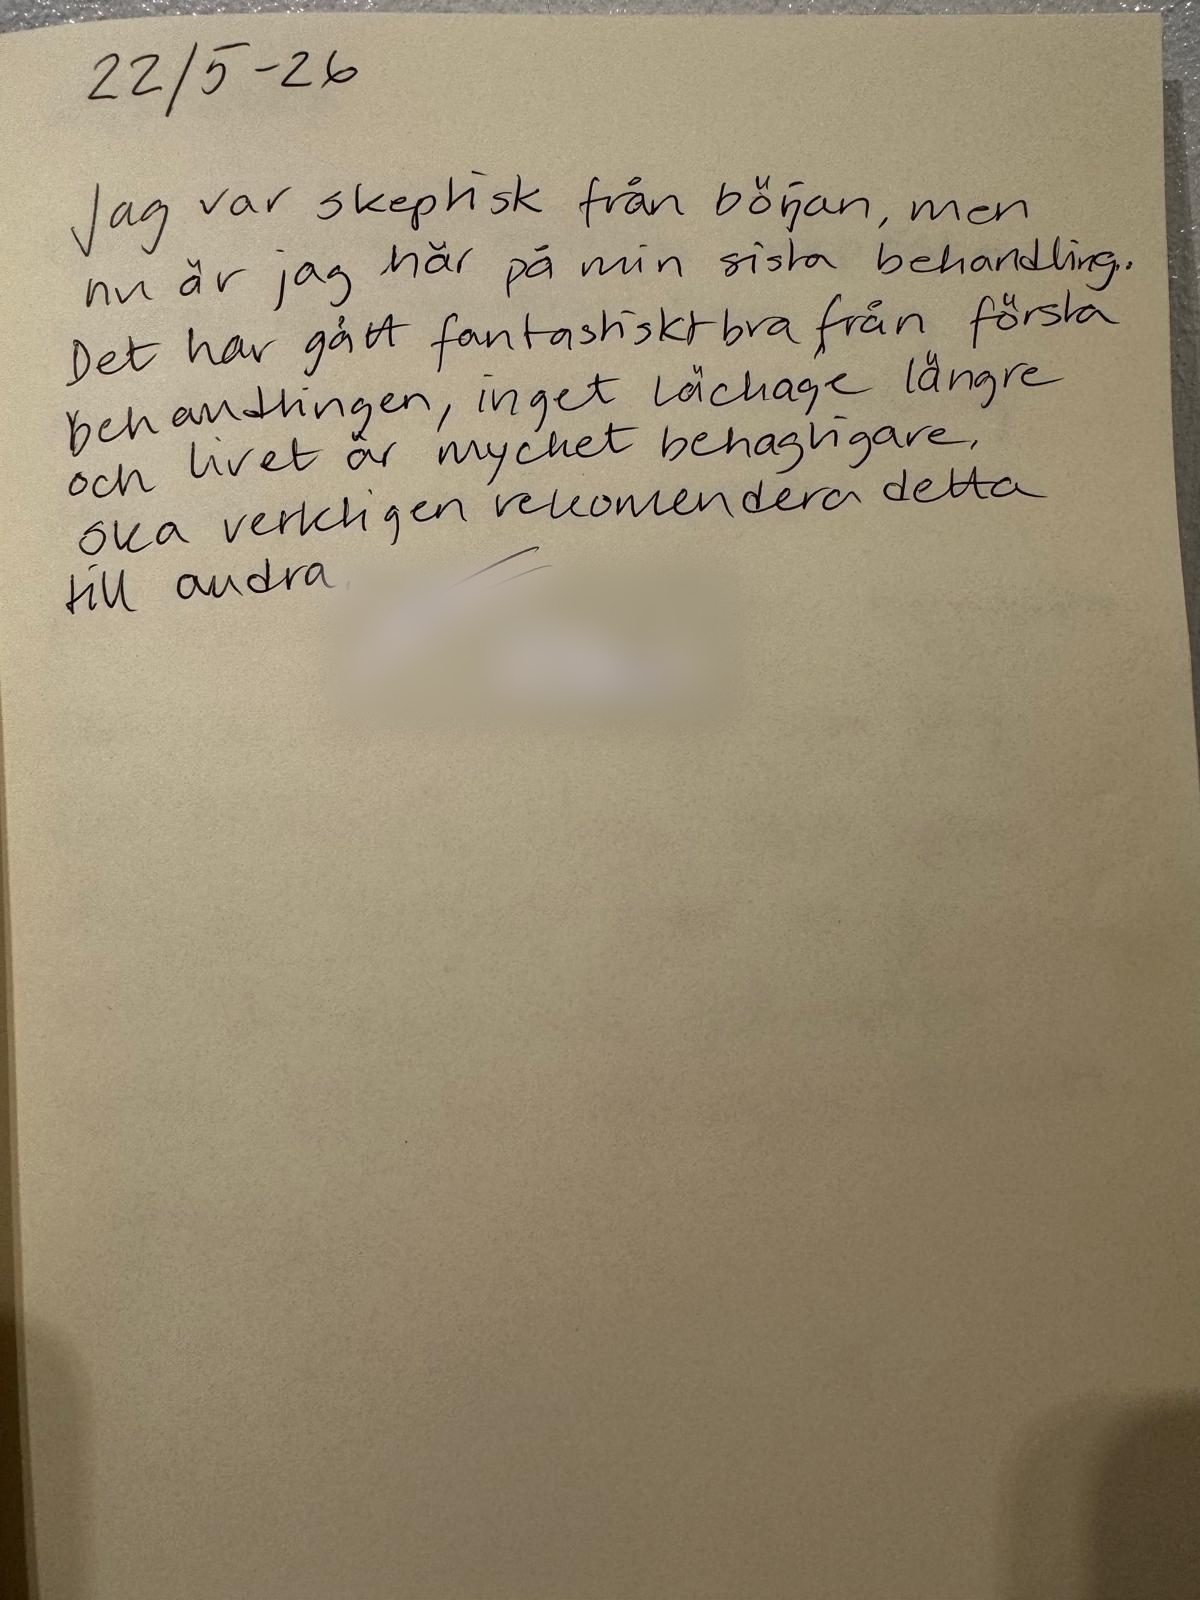 22/5-26
Jag var skeptisk från början, men
nu är jag här på min sista behandling.
Det har gått fantastiskt bra från första
behandlingen, inget läckage längre
och livet är mycket behagligare,
ska verkligen rekomendera detta
till andra